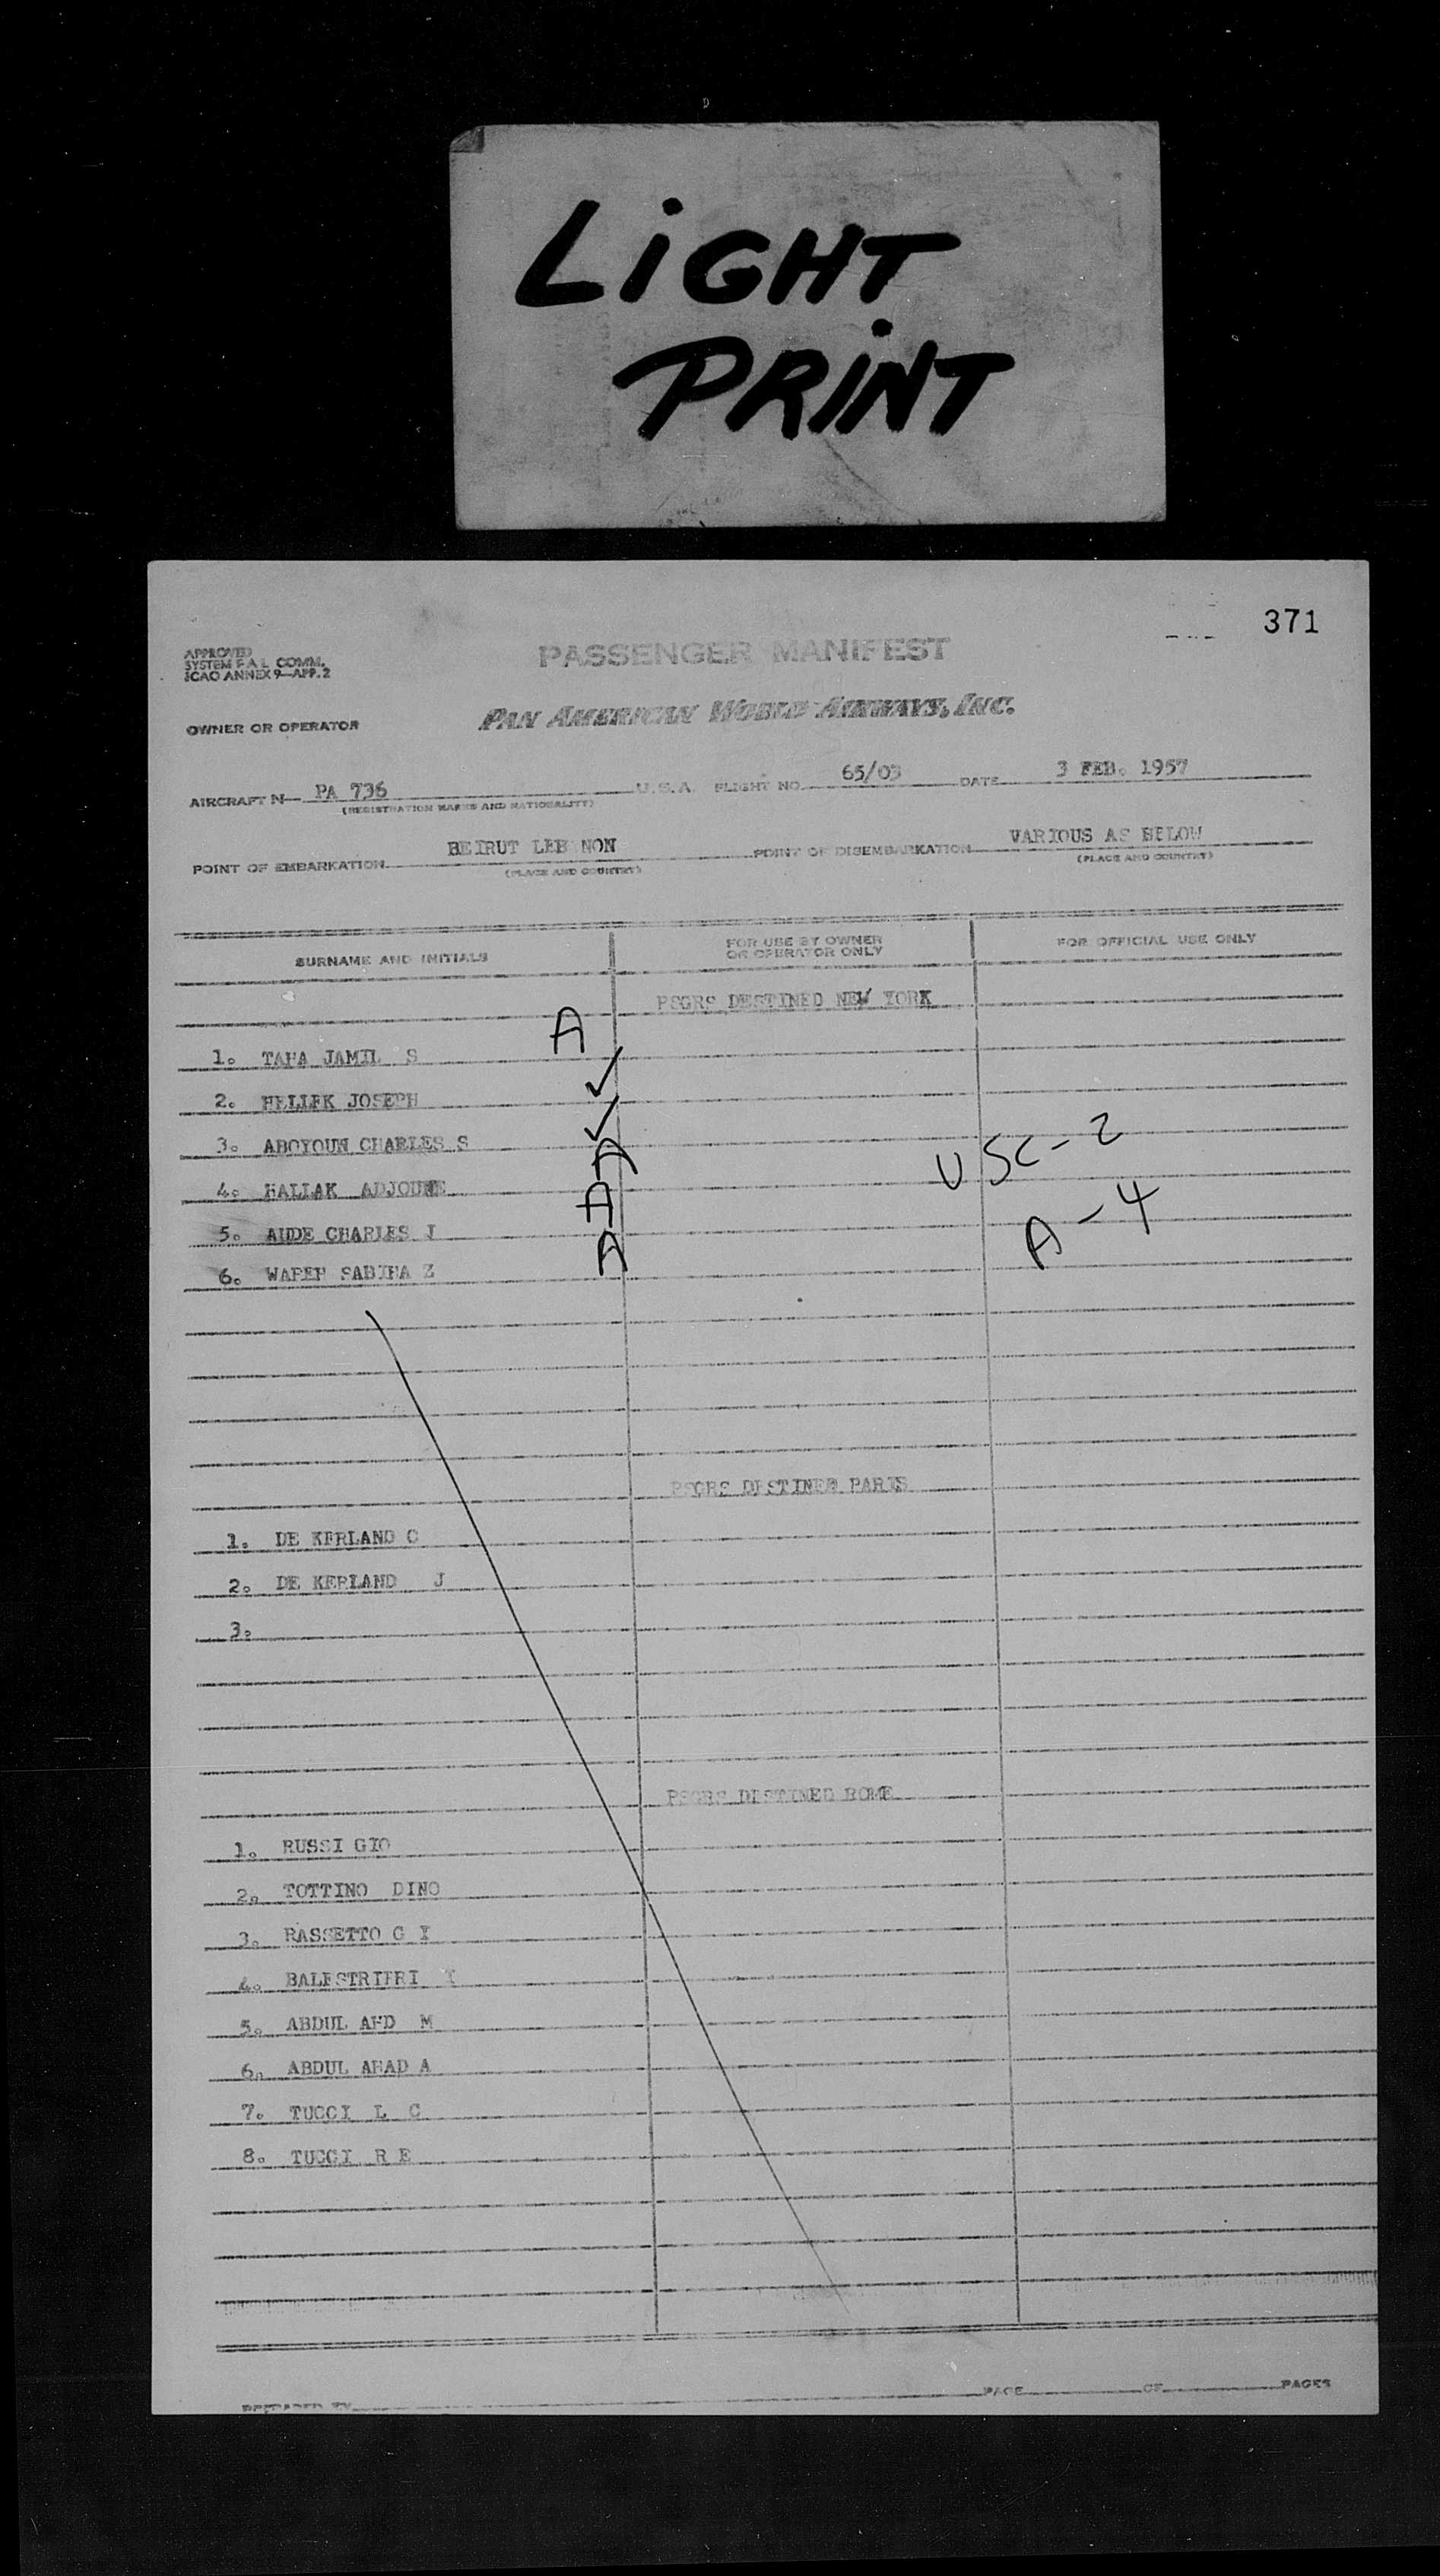 LiGHT
PRiNT
371
APPROVED
SYSTEM F A L COMM.
ICAO ANNEX 9—APP. 2
PASSENGER MANIFEST
OWNER OR OPERATOR PAN AMERICAN WORLD AIRWAYS, INC.
AIRCRAFT N— PA 736 U.S.A. FLIGHT NO. 65/03 DATE 3 FEB. 1957
(REGISTRATION MARKS AND NATIONALITY)
POINT OF EMBARKATION BEIRUT LEB NON POINT OF DISEMBARKATION VARIOUS AS BELOW
(PLACE AND COUNTRY) (PLACE AND COUNTRY)
SURNAME AND INITIALS FOR USE BY OWNER OR OPERATOR ONLY FOR OFFICIAL USE ONLY
PSGRS DESTINED NEW YORK
1. TAHA JAMIL S A
2. JOSEPH ✓
3. ABOYOUN CHARLES S ✓
4. HALLAK A USC-2
5. AUDE CHARLES J A A-4
6. SABIHA Z A
PSGRS DESTINED PARIS
1. DE KERLAND C
2. DE KERLAND J
3.
PSGRS DISTINED ROME
1. RUSSI GIO
2. TOTTINO DINO
3. RASSETTO G I
4. BALESTRIERI
5. ABDUL AHD M
6. ABDUL AHAD A
7. TUCCI L C
8. TUCCI R E
PREPARED BY PAGE OF PAGES